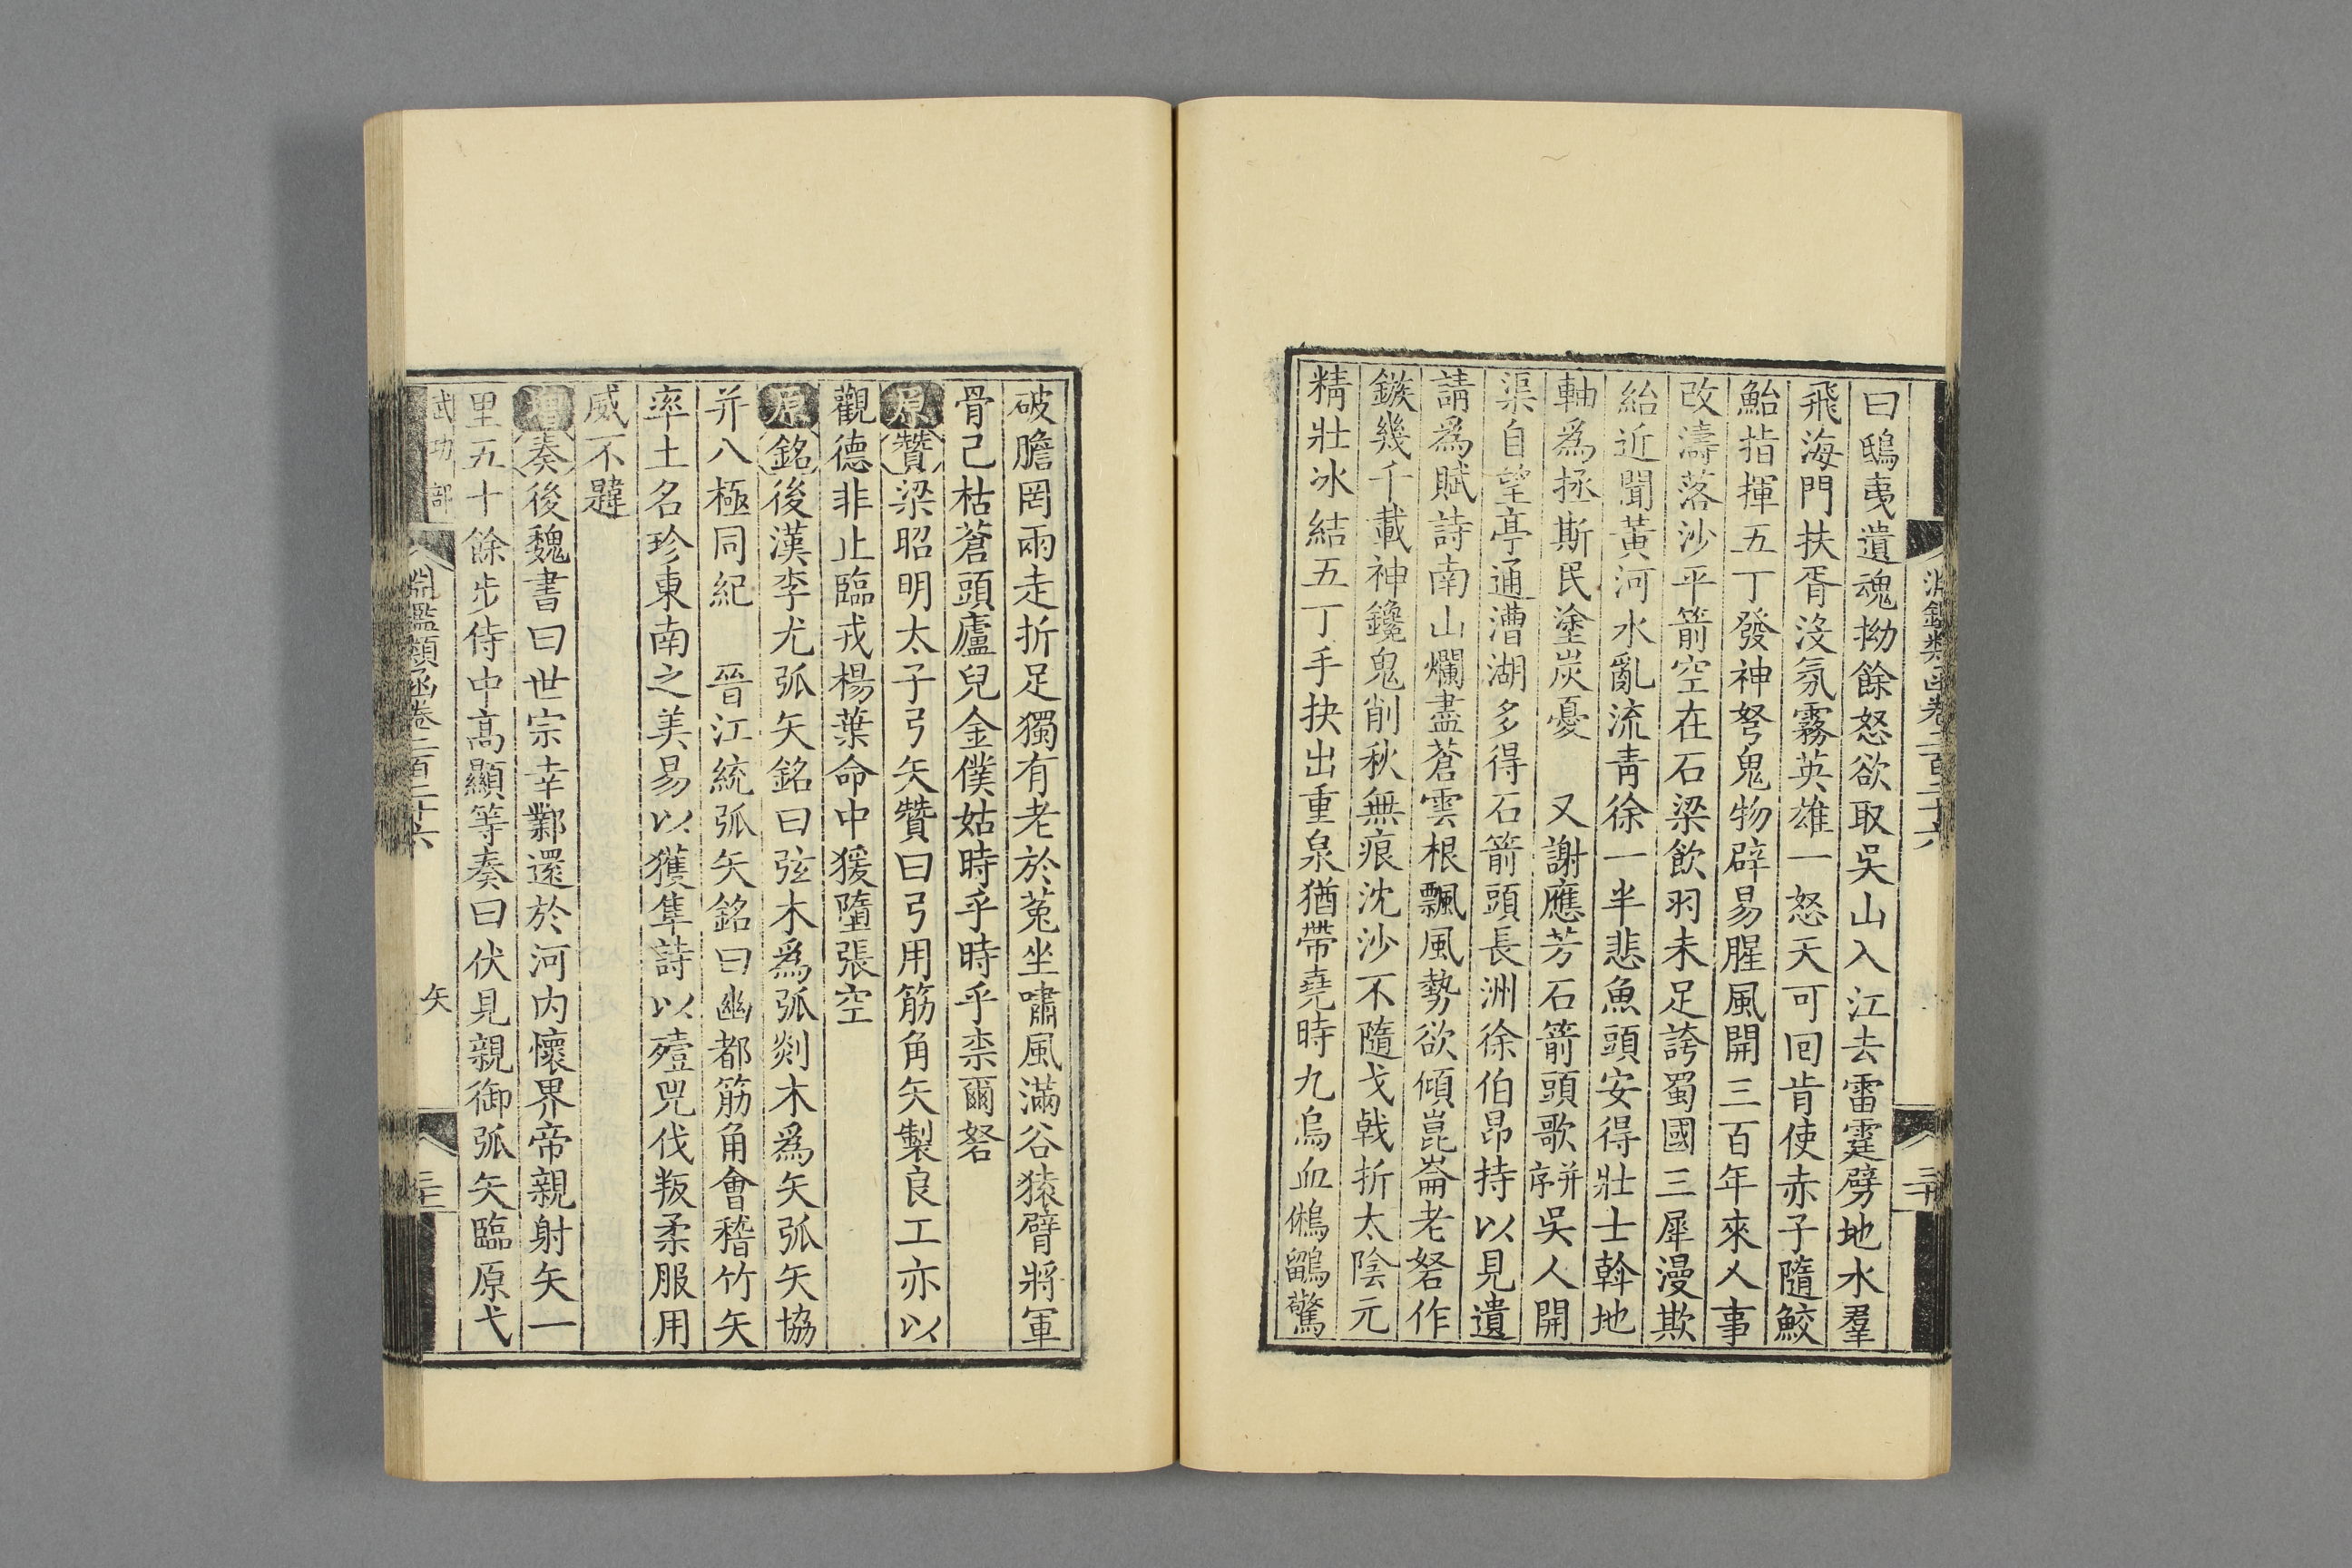 淵鑑類函卷二百二十六
曰鴟夷遺魂拗餘怒欲取吳山入江去雷霆劈地水羣
飛海門扶胥沒氛霧英雄一怒天可回肯使赤子隨鮫
鮐指揮五丁發神弩鬼物辟易腥風開三百年來人事
改濤落沙平箭空在石梁飲羽未足誇蜀國三犀漫欺
紿近聞黃河水亂流靑徐一半悲魚頭安得壯士斡地
軸爲拯斯民塗炭憂 又謝應芳石箭頭歌序并吳人開
渠自望亭通漕湖多得石箭頭長洲徐伯昂持以見遺
請爲賦詩南山爛盡蒼雲根飄風勢欲傾崑崙老砮作
鏃幾千載神鑱鬼削秋無痕沈沙不隨戈戟折太陰元
精壯冰結五丁手抉出重泉猶帶堯時九烏血鵂鶹驚
破膽罔兩走折足獨有老於菟坐嘯風滿谷猿臂將軍
骨己枯蒼頭廬兒金僕姑時乎時乎柰爾砮
原贊梁昭明太子弓矢贊曰弓用筋角矢製良工亦以
觀德非止臨戎楊葉命中猨墮張空
原銘後漢李尤弧矢銘曰弦木爲弧剡木爲矢弧矢協
并八極同紀 晉江統弧矢銘曰幽都筋角會稽竹矢
率土名珍東南之美易以獲隼詩以殪兕伐叛柔服用
威不韙
增奏後魏書曰世宗幸鄴還於河內懷界帝親射矢一
里五十餘步侍中高顯等奏曰伏見親御弧矢臨原弋
武功部 淵鑑類函卷二百二十六 矢 三十